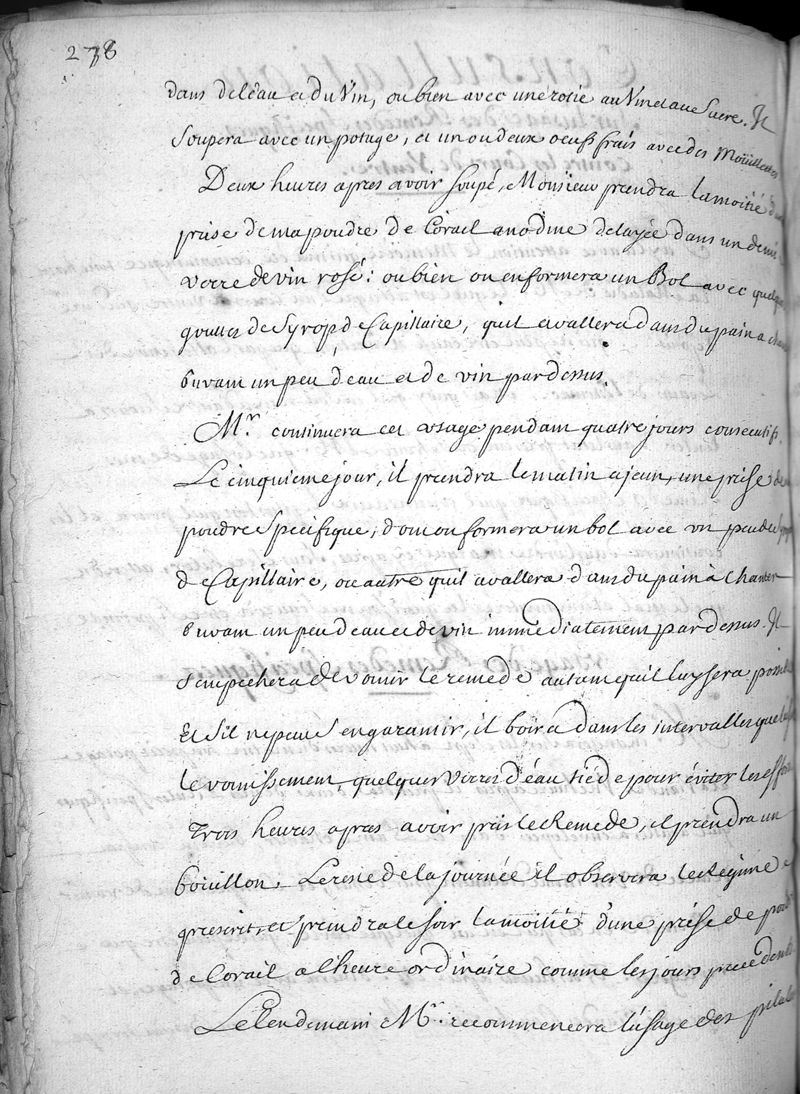 278
dans de l'eau et du Vin, ou bien avec une rotie au Vin et au Sucre. Il
soupera avec un potage, et un ou deux oeufs frais avec des Moüillettes
Deux heures apres avoir soupé, Monsieur prendra la moitié d'une
prise de ma poudre de Corail anodine delayée dans un demi
verre de vin rosé: ou bien on en formera un Bol avec quelques
gouttes de Syrop de Capillaire, qu'il avallera dans du pain a chanter
buvant un peu d'eau et de vin par dessus.
Mr. continuera cet usage pendant quatre jours consecutifs.
Le cinquieme jour, il prendra le matin a jeun, une prise de
poudre Specifique, dont on formera un bol avec un peu de Syrop
de Capillaire, ou autre qu'il avallera dans du pain à Chanter
buvant un peu d'eau et de vin immediatement par dessus. Il
s'empechera de vomir le remede autant qu'il luy sera possible
Et s'il ne peut s'en garantir, il boira dans les intervalles que
le vomissement, quelques verres d'éau tiéde pour éviter les efforts
Trois heures apres avoir pris le Remede, il prendra un
boüillon. Le reste de la journée il observera le Regime
prescrit, et prendra le soir la moitié d'une prise de poudre
de Corail a l'heure ordinaire comme les jours precedents
Le Lendemain Mr. recommencera l'usage des pilules